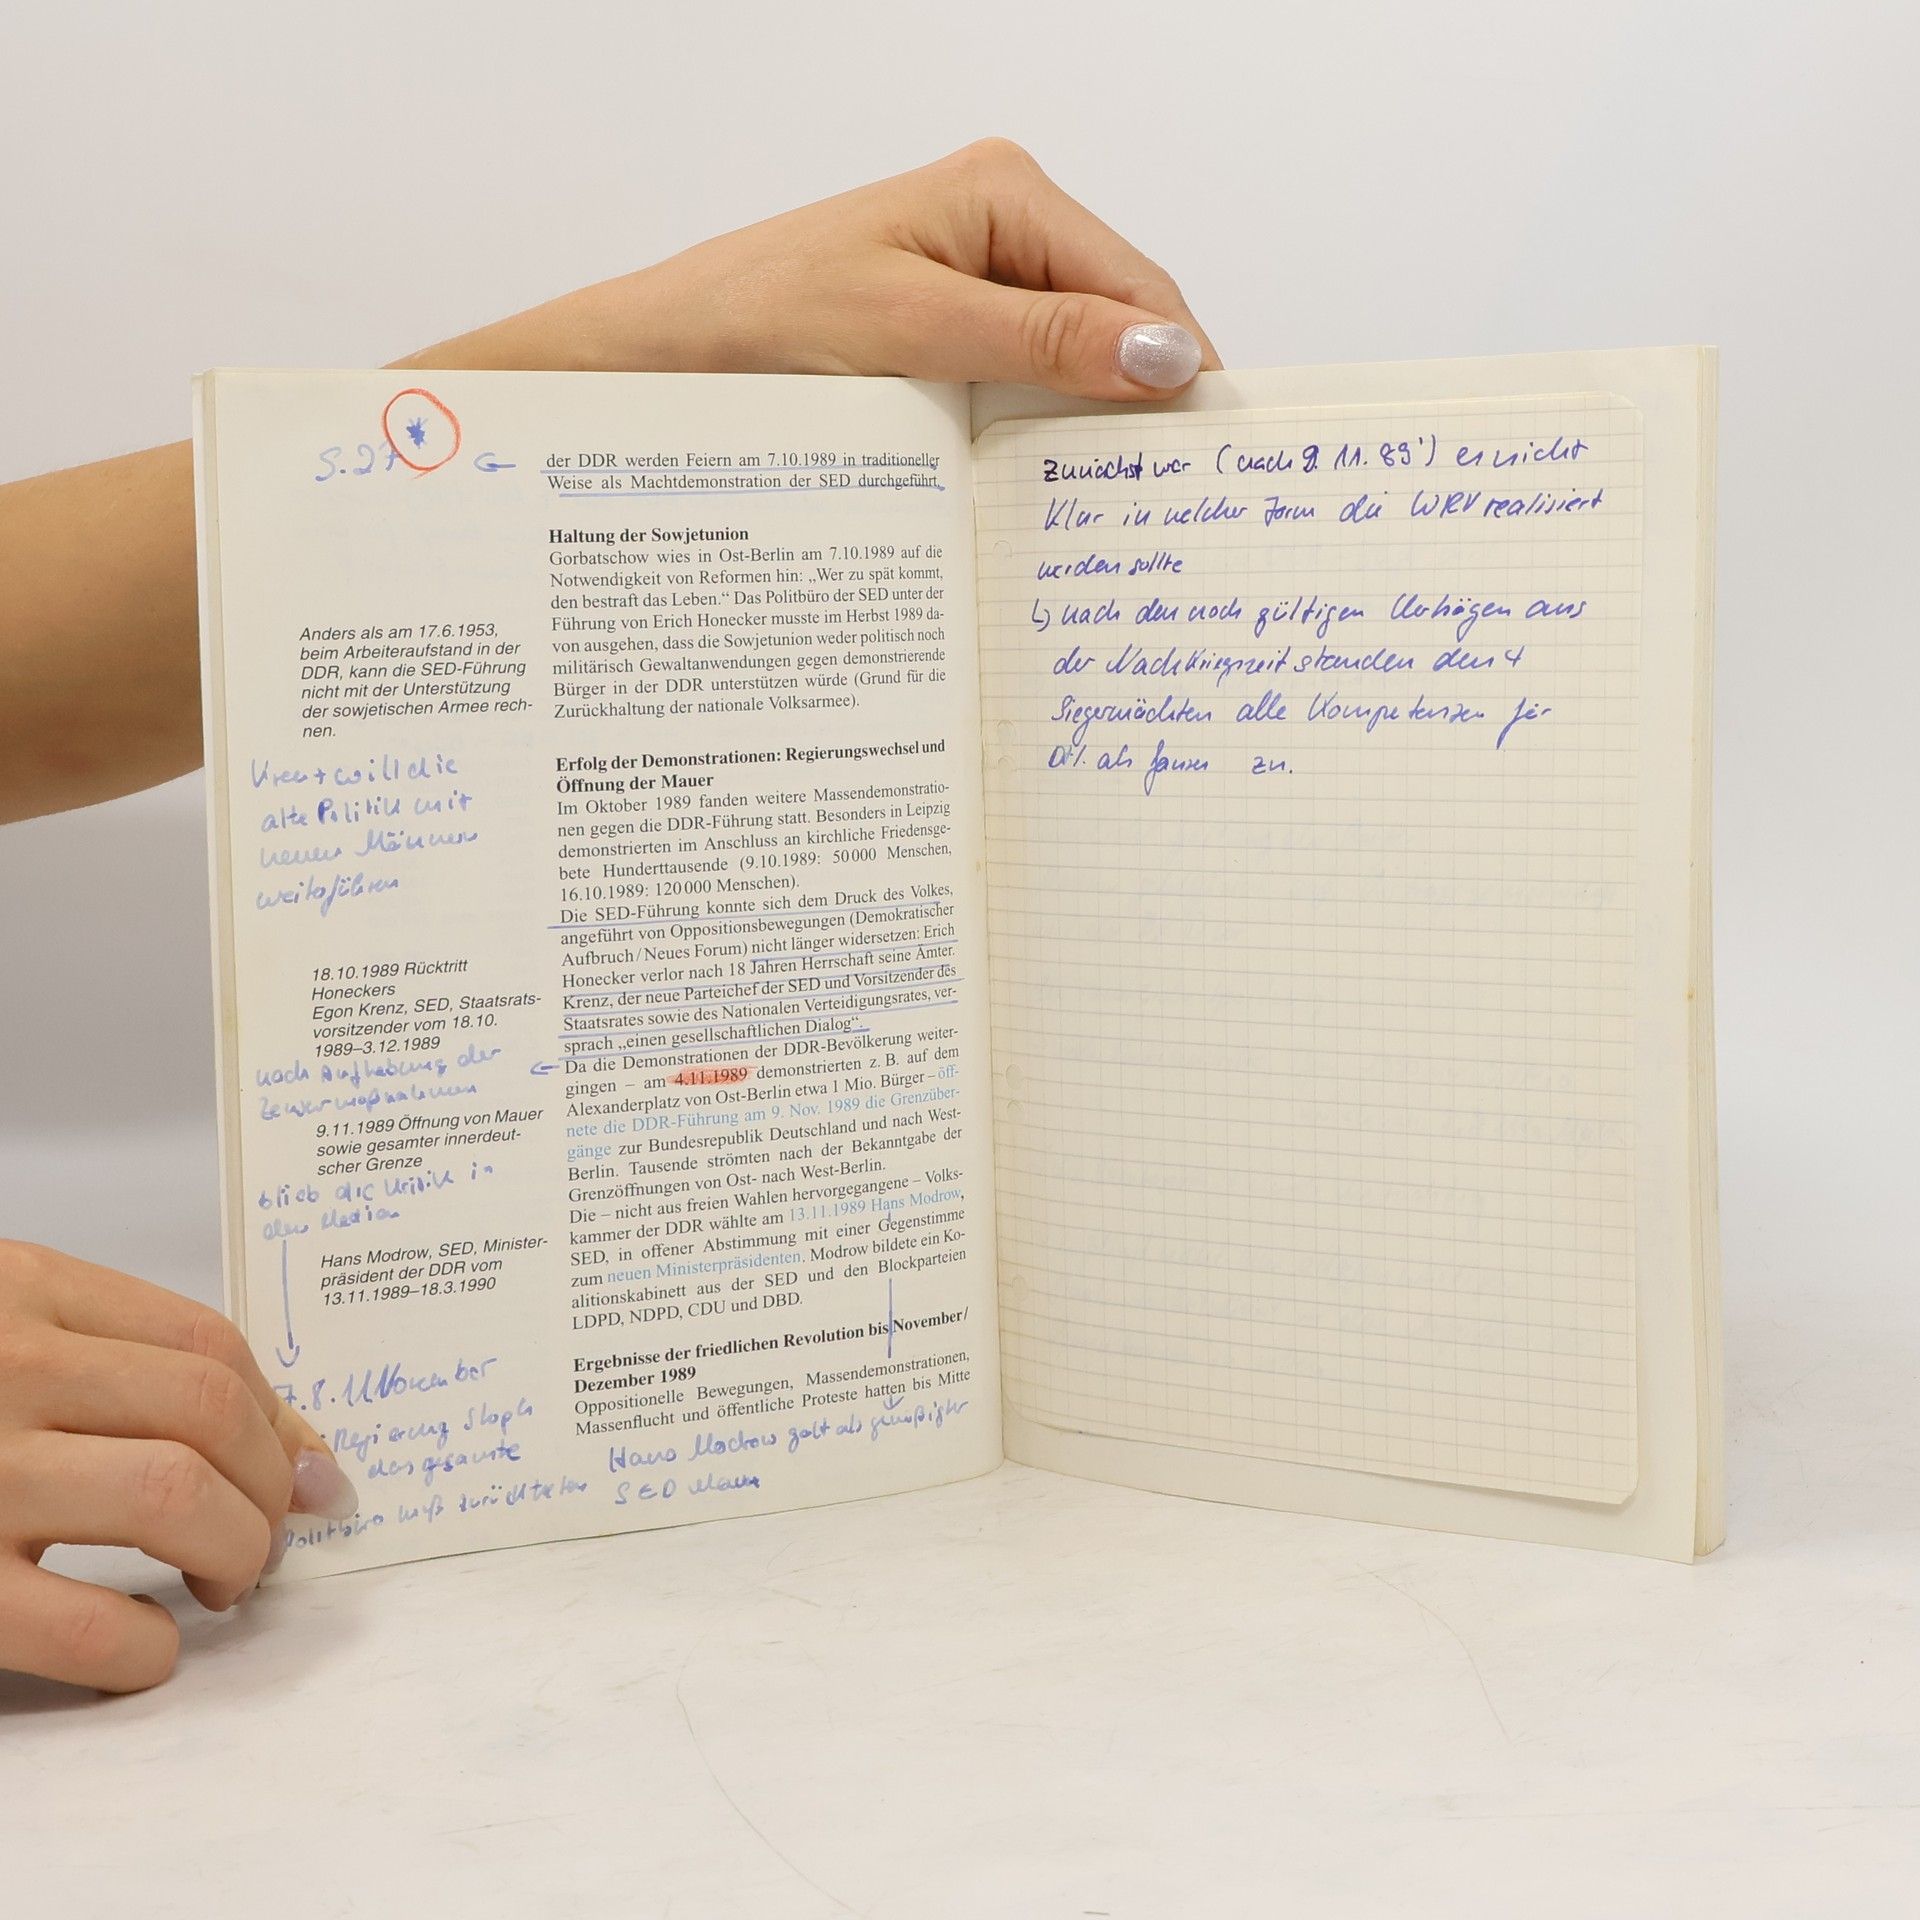 S. 27 *
der DDR werden Feiern am 7.10.1989 in traditioneller
Weise als Machtdemonstration der SED durchgeführt.
Haltung der Sowjetunion
Gorbatschow wies in Ost-Berlin am 7.10.1989 auf die
Notwendigkeit von Reformen hin: „Wer zu spät kommt,
den bestraft das Leben.“ Das Politbüro der SED unter der
Führung von Erich Honecker musste im Herbst 1989 da-
von ausgehen, dass die Sowjetunion weder politisch noch
militärisch Gewaltanwendungen gegen demonstrierende
Bürger in der DDR unterstützen würde (Grund für die
Zurückhaltung der nationale Volksarmee).
Anders als am 17.6.1953,
beim Arbeiteraufstand in der
DDR, kann die SED-Führung
nicht mit der Unterstützung
der sowjetischen Armee rech-
nen.
Erfolg der Demonstrationen: Regierungswechsel und
Öffnung der Mauer
Im Oktober 1989 fanden weitere Massendemonstratio-
nen gegen die DDR-Führung statt. Besonders in Leipzig
demonstrierten im Anschluss an kirchliche Friedensge-
bete Hunderttausende (9.10.1989: 50000 Menschen,
16.10.1989: 120000 Menschen).
Die SED-Führung konnte sich dem Druck des Volkes,
angeführt von Oppositionsbewegungen (Demokratischer
Aufbruch/Neues Forum) nicht länger widersetzen: Erich
Honecker verlor nach 18 Jahren Herrschaft seine Ämter.
Krenz, der neue Parteichef der SED und Vorsitzender des
Staatsrates sowie des Nationalen Verteidigungsrates, ver-
sprach „einen gesellschaftlichen Dialog“.
Da die Demonstrationen der DDR-Bevölkerung weiter-
gingen – am 4.11.1989 demonstrierten z. B. auf dem
Alexanderplatz von Ost-Berlin etwa 1 Mio. Bürger – öff-
nete die DDR-Führung am 9. Nov. 1989 die Grenzüber-
gänge zur Bundesrepublik Deutschland und nach West-
Berlin. Tausende strömten nach der Bekanntgabe der
Grenzöffnungen von Ost- nach West-Berlin.
Die – nicht aus freien Wahlen hervorgegangene – Volks-
kammer der DDR wählte am 13.11.1989 Hans Modrow,
SED, in offener Abstimmung mit einer Gegenstimme
zum neuen Ministerpräsidenten. Modrow bildete ein Ko-
alitionskabinett aus der SED und den Blockparteien
LDPD, NDPD, CDU und DBD.
Krenz will die
alte Politik mit
neuen Männern
weiterführen
18.10.1989 Rücktritt
Honeckers
Egon Krenz, SED, Staatsrats-
vorsitzender vom 18.10.
1989–3.12.1989
nach Aufhebung der
Zensurmaßnahmen
9.11.1989 Öffnung von Mauer
sowie gesamter innerdeut-
scher Grenze
blieb die Kritik in
den Medien
Hans Modrow, SED, Minister-
präsident der DDR vom
13.11.1989–18.3.1990
7. 8. November
Regierung Stoph
das gesamte
Politbüro muß zurücktreten
Ergebnisse der friedlichen Revolution bis November/
Dezember 1989
Oppositionelle Bewegungen, Massendemonstrationen,
Massenflucht und öffentliche Proteste hatten bis Mitte
Hans Modrow galt als gemäßigter
SED Mann
Zunächst war (nach 9. 11. 89') es nicht
Klar in welcher Form die WRV realisiert
werden sollte
↳ nach den noch gültigen Verträgen aus
der Nachkriegszeit standen den 4
Siegermächten alle Kompetenzen für
Dtl. als Ganzes zu.